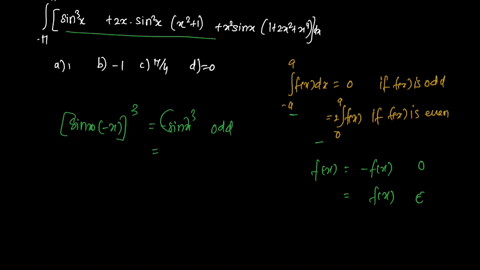 ∫ [ sin³x + 2x · sin³x (x²+1) + x² sinx (1+2x²+x⁴) ] dx
-π
a) 1 b) -1 c) π/4 d) =0
∫ f(x)dx = 0 if f(x) is odd
a
-a
= 2∫ f(x) if f(x) is even
a
0
[sin(-x)]³ = (sinx³ odd
=
f(x) = -f(x) O
= f(x) E